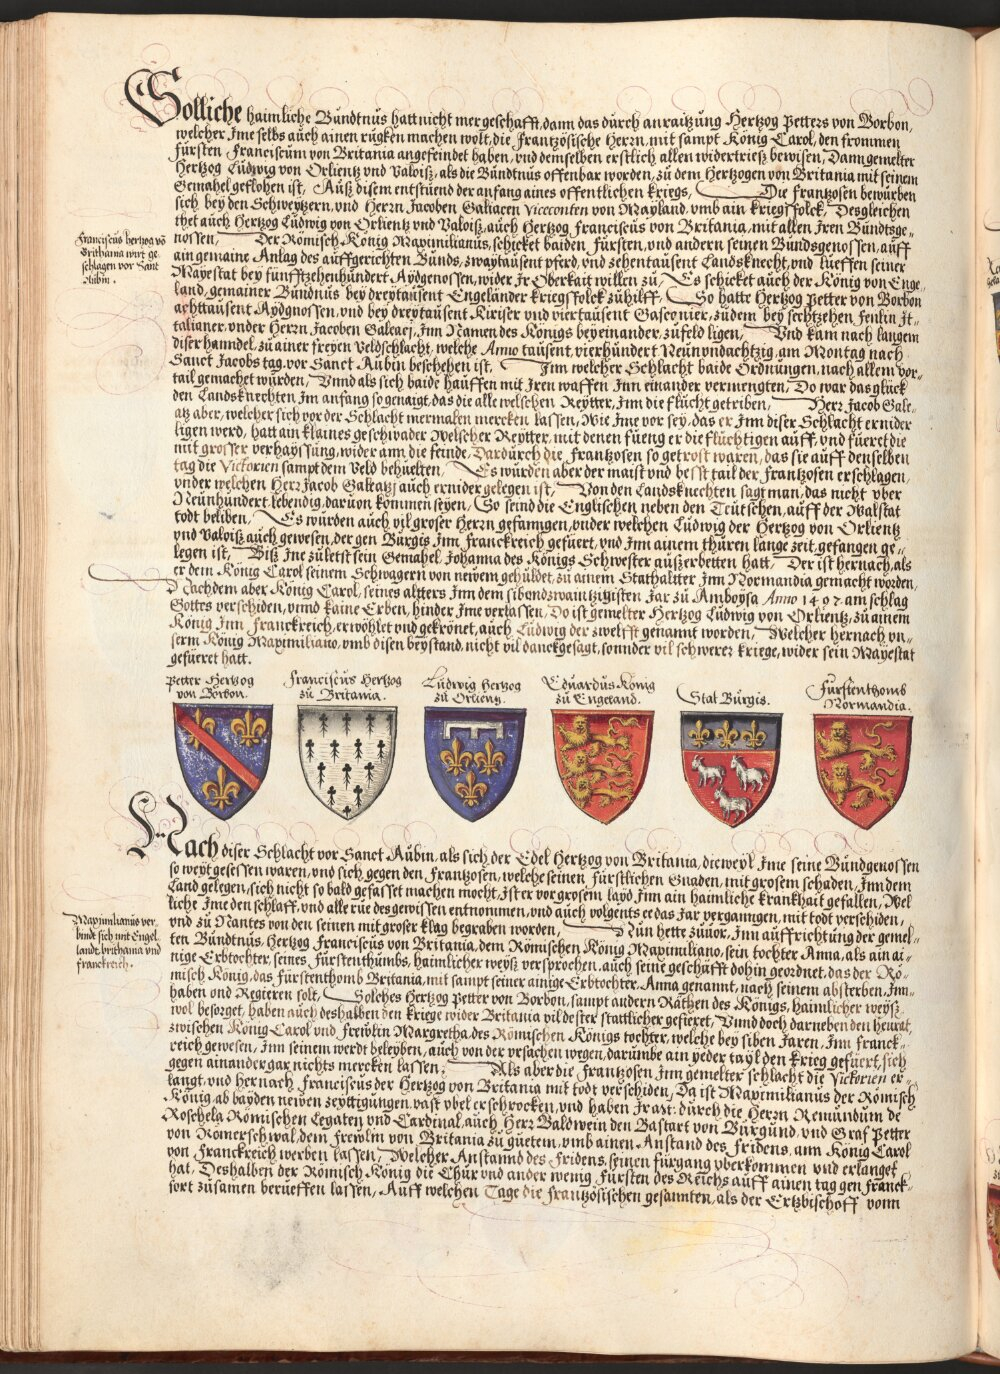 Solliche haimliche Bündtnüs hatt nicht mer geschafft, dann das dürch anraitzüng Hertzog Petters von Borbon,
welcher Jme selbs aüch ainen rügken machen wolt, die Frantzösische Herrn, mit sampt König Carol, den frommen
fürsten Franciscüm von Britania angefeindet haben, vnd demselben erstlich allen widertriesz bewisen, Dann gemelter
Hertzog Lüdwig von Orlientz vnd Valoisz, als die Bündtnüs offenbar worden, zü dem Hertzogen von Britania mit seinem
Gemahel geflohen ist, Aüsz disem entstüend der anfang aines offentlichen kriegs, Die frantzosen bewürben
sich bey den Schweytzern, vnd Herrn Jacoben Galiacen Viceconten von Mayland, vmb ain kriegszfolck, Desgleichen
thet aüch Hertzog Lüdwig von Orlientz vnd Valoisz, aüch Hertzog Franciscüs von Britania, mit allen Jren Bündtsge-
nossen, Der Römisch König Maximilianüs, schicket baiden fürsten, vnd andern seinen Bündsgenossen, aüff
ain gemaine Anlag des aüffgerichten Bünds, zwaytaüsent pferd, vnd zehentaüsent Landsknecht, vnd lüeffen seiner
Mayestat bey fünfftzehenhündert Aydgenossen, wider Jr Oberkait willen zü, Es schicket aüch der König von Enge-
land, gemainer Bündnüs bey dreytaüsent Engelander kriegszfolck zü hilff, So hatte Hertzog Petter von Borbon
achttaüsent Aydgnossen, vnd bey dreytaüsent Kiriser vnd viertaüsent Gasconier, züdem bey sechtzehen fenlin It-
talianer, vnder Herrn Jacoben Galeacj, Jnn Namen des Königs beyeinander, zü feld ligen, Vnd kam nach langem
diser hanndel, zü ainer freyen Veldschlacht, welche Anno taüsent, vierhündert Neünvndachtzig, am Montag nach
Sanct Jacobs tag, vor Sanct Aübin beschehen ist, Jnn welcher Schlacht baide Ordnüngen, nach allem vor-
tail gemachet würden, Vnnd als sich baide haüffen mit Jren waffen Jnn einander vermengten, Do war das glück
den Landsknechten Jm anfang so genaigt, das die alle welschen Reytter, Jnn die flücht getriben, Herr Jacob Gale-
atz aber, welcher sich vor der Schlacht mermalen mercken lassen, Wie Jme vor sey, das er Jnn diser Schlacht ernider
ligen werd, hatt ain klaines geschwader Welscher Reytter, mit denen füeng er die flüchtigen aüff, vnd füeret die
mit grosser verhayssüng, wider ann die feinde, Dardürch die frantzosen so getrost waren, das sie aüff denselben
tag die Victorien sampt dem Veld behüelten, Es würden aber der maist vnd besst tail der frantzosen erschlagen,
vnder welchen Herr Jacob Galeatzj aüch ernider gelegen ist, Von den Landsknechten sagt man, das nicht vber
Neünhündert, lebendig, darüon kommen seyen, So seind die Englischen neben den Teütschen, aüff der Walstat
todt beliben, Es würden aüch vil groser Herrn gefanngen, vnder welchen Lüdwig der Hertzog von Orlientz
vnd Valoisz aüch gewesen, der gen Bürgis Jnn Franckreich gefüert, vnd Jnn ainem thüren lange zeit, gefangen ge-
legen ist, Bisz Jne zületst sein Gemahel, Johanna des Königs Schwester aüszerbetten hatt, Der ist hernach, als
er dem König Carol seinem Schwagern von newem gehüldet, zü ainem Stathaltter Jnn Normandia gemacht worden,
Nachdem aber König Carol, seines altters Jnn dem sibendzwaintzigisten Jar zü Amboysa Anno 1497. am schlag
Gottes verschiden, vnnd kaine Erben, hinder Jme verlassen, Do ist gemelter Hertzog Lüdwig von Orlientz, zü ainem
König Jnn franckreich, erwöhlet vnd gekrönet, aüch Lüdwig der zwelfft genannt worden, Welcher hernach vn-
serm König Maximiliano, vmb disen beystand, nicht vil danckgesagt, sonnder vil schwerer kriege, wider sein Mayestat
gefüeret hatt.
Franciscüs hertzog vō
Brithania wirt ge-
schlagen vor Sant
Aübin.
Petter Hertzog
von Borbon.
Franciscüs Hertzog
zü Britania.
Lüdwig Hertzog
zü Orlientz.
Edüardüs König
zü Engeland.
Stat Bürgis.
Fürstenthoms
Normandia.
Nach diser Schlacht vor Sanct Aübin, als sich der Edel Hertzog von Britania, dieweyl Jme seine Bündgenossen
so weyt gesessen waren, vnd sich gegen den Frantzosen, welche seinen Fürstlichen Gnaden, mit grosem schaden, Jnn dem
Land gelegen, sich nicht so bald gefasset machen mocht, Jst er vor grosem layd Jnn ain haimliche kranckhait gefallen, Wel-
liche Jme den schlaff, vnd alle rüe des gewissen entnommen, vnd aüch volgents er das Jar verganngen, mit todt verschiden,
vnd zü Nantes von den seinen mit groser klag begraben worden, Nün hette züüor, Jnn aüffrichtüng der gemel-
ten Bündtnüs, Hertzog Franciscüs von Britania, dem Römischen König Maximiliano, sein tochter Anna, als ain ai-
nige Erbtochter, seines Fürstenthümbs, haimlicher weysz versprochen, aüch seine geschäfft dohin geordnet, das der Rö-
misch König, das Fürstenthomb Britania, mit sampt seiner ainige Erbtochter, Anna genannt, nach seinem absterben, Jnn-
haben vnd Regieren solt, Solches Hertzog Petter von Borbon, sampt andern Räthen des Königs, haimlicher weysz
wol besorget, haben aüch deshalben den kriege wider Britania vil dester stattlicher gefieret, Vnnd doch darneben den heürat,
zwischen König Carol vnd frewlin Margretha, des Römischen Königs tochter, welche bey siben Jaren, Jnn franck-
reich gewesen, Jnn seinem werdt beleyben, aüch von der vrsachen wegen, darümbe ain yeder tayl den krieg gefüert, sich
gegen ainander gar nichts mercken lassen, Als aber die Frantzosen Jnn gemelter schlacht die Victorien er-
langt, vnd hernach Franciscüs der Hertzog von Britania mit todt verschiden, Da ist Maximilianüs der Römisch
König ab bayden newen zeyttigüngen, vast vbel erschrocken, vnd haben Jr Mt: dürch die Herrn Remündüm de
Roschela Römischen Legaten vnd Cardinal, aüch Herr Baldwein den Bastart von Bürgünd, vnd Graf Petter
von Römerschwal, dem frewlin von Britania zü güetem, vmb ainen Anstand des fridens, ann König Carol
von Franckreich werben lassen, Welcher Anstannd des fridens, seinen fürgang vberkommen vnd erlanget
hat, Deshalben der Römisch König die Chür vnd ander wenig Fürsten des Reichs aüff ainen tag gen Franck-
fort züsamen berüeffen lassen, Aüff welchen Tage die frantzösischen gesannten, als der Ertzbischoff vonn
Maximilianüs ver-
bindt sich mit Engel-
landt, brithania vnd
franckreich.